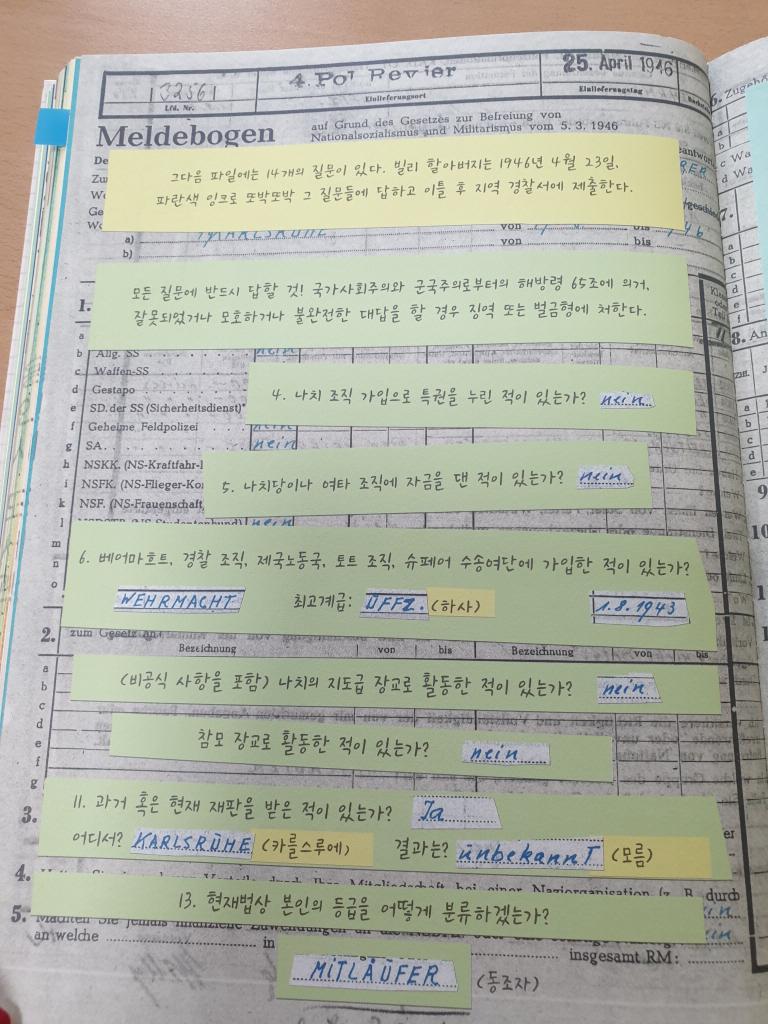 32561
4. Pol Revier
25. April 1946
Lfd. Nr.
Einlieferungsort
Einlieferungstag
Meldebogen
auf Grund des Gesetzes zur Befreiung von
Nationalsozialismus und Militarismus vom 5. 3. 1946
그다음 파일에는 14개의 질문이 있다. 빌리 할아버지는 1946년 4월 23일,
파란색 잉크로 또박또박 그 질문들에 답하고 이틀 후 지역 경찰서에 제출한다.
a) KARLSRUHE von bis 46
b) von bis
모든 질문에 반드시 답할 것! 국가사회주의와 군국주의로부터의 해방령 65조에 의거,
잘못되었거나 모호하거나 불완전한 대답을 할 경우 징역 또는 벌금형에 처한다.
1.
a
b Allg. SS nein
c Waffen-SS
d Gestapo
e SD. der SS (Sicherheitsdienst)*
f Geheime Feldpolizei nein
g SA. nein
h NSKK. (NS-Kraftfahr-
i NSFK. (NS-Flieger-Ko
k NSF. (NS-Frauenschaft,
l nein
m
n
o
4. 나치 조직 가입으로 특권을 누린 적이 있는가? nein
5. 나치당이나 여타 조직에 자금을 댄 적이 있는가? nein
6. 베어마흐트, 경찰 조직, 제국노동국, 토트 조직, 슈페어 수송여단에 가입한 적이 있는가?
WEHRMACHT 최고계급: UFFZ. (하사) 1.8.1943
2. zum Gesetz
Bezeichnung von bis Bezeichnung von bis
a
b
c
d
e
f
g
(비공식 사항을 포함) 나치의 지도급 장교로 활동한 적이 있는가? nein
참모 장교로 활동한 적이 있는가? nein
3.
11. 과거 혹은 현재 재판을 받은 적이 있는가? Ja
어디서? KARLSRUHE (카를스루에) 결과는? unbekannt (모름)
4. Mitgliedschaft bei einer Naziorganisation (z. B. durch
13. 현재법상 본인의 등급을 어떻게 분류하겠는가?
5. Machten Sie jemals finanzielle Zuwendungen an die
an welche in insgesamt RM:
MITLÄUFER (동조자)